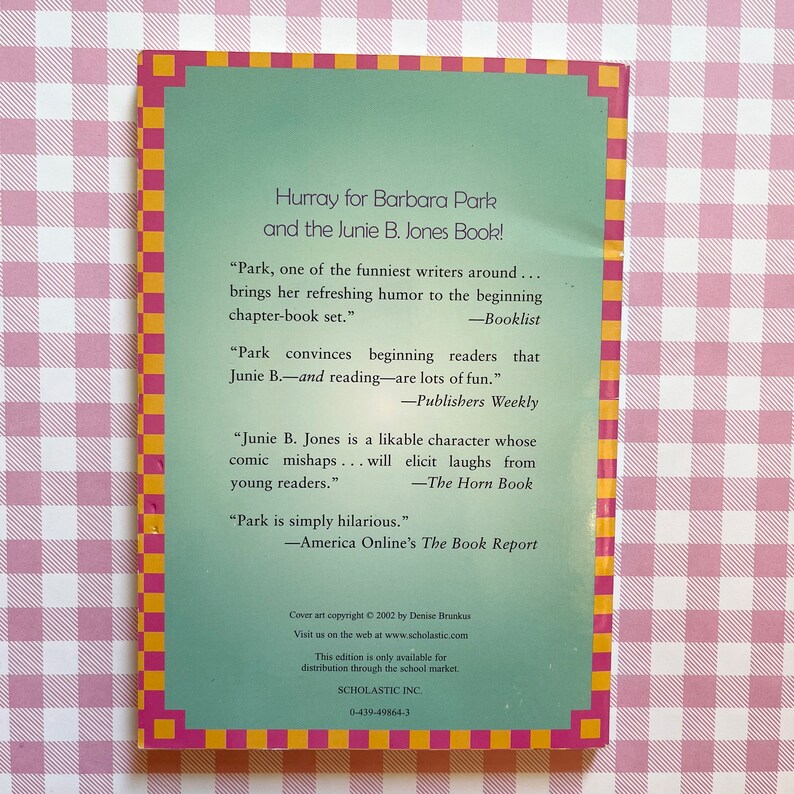 Hurray for Barbara Park
and the Junie B. Jones Book!
“Park, one of the funniest writers around . . .
brings her refreshing humor to the beginning
chapter-book set.” —Booklist
“Park convinces beginning readers that
Junie B.—and reading—are lots of fun.”
—Publishers Weekly
“Junie B. Jones is a likable character whose
comic mishaps . . . will elicit laughs from
young readers.” —The Horn Book
“Park is simply hilarious.”
—America Online’s The Book Report
Cover art copyright © 2002 by Denise Brunkus
Visit us on the web at www.scholastic.com
This edition is only available for
distribution through the school market.
SCHOLASTIC INC.
0-439-49864-3